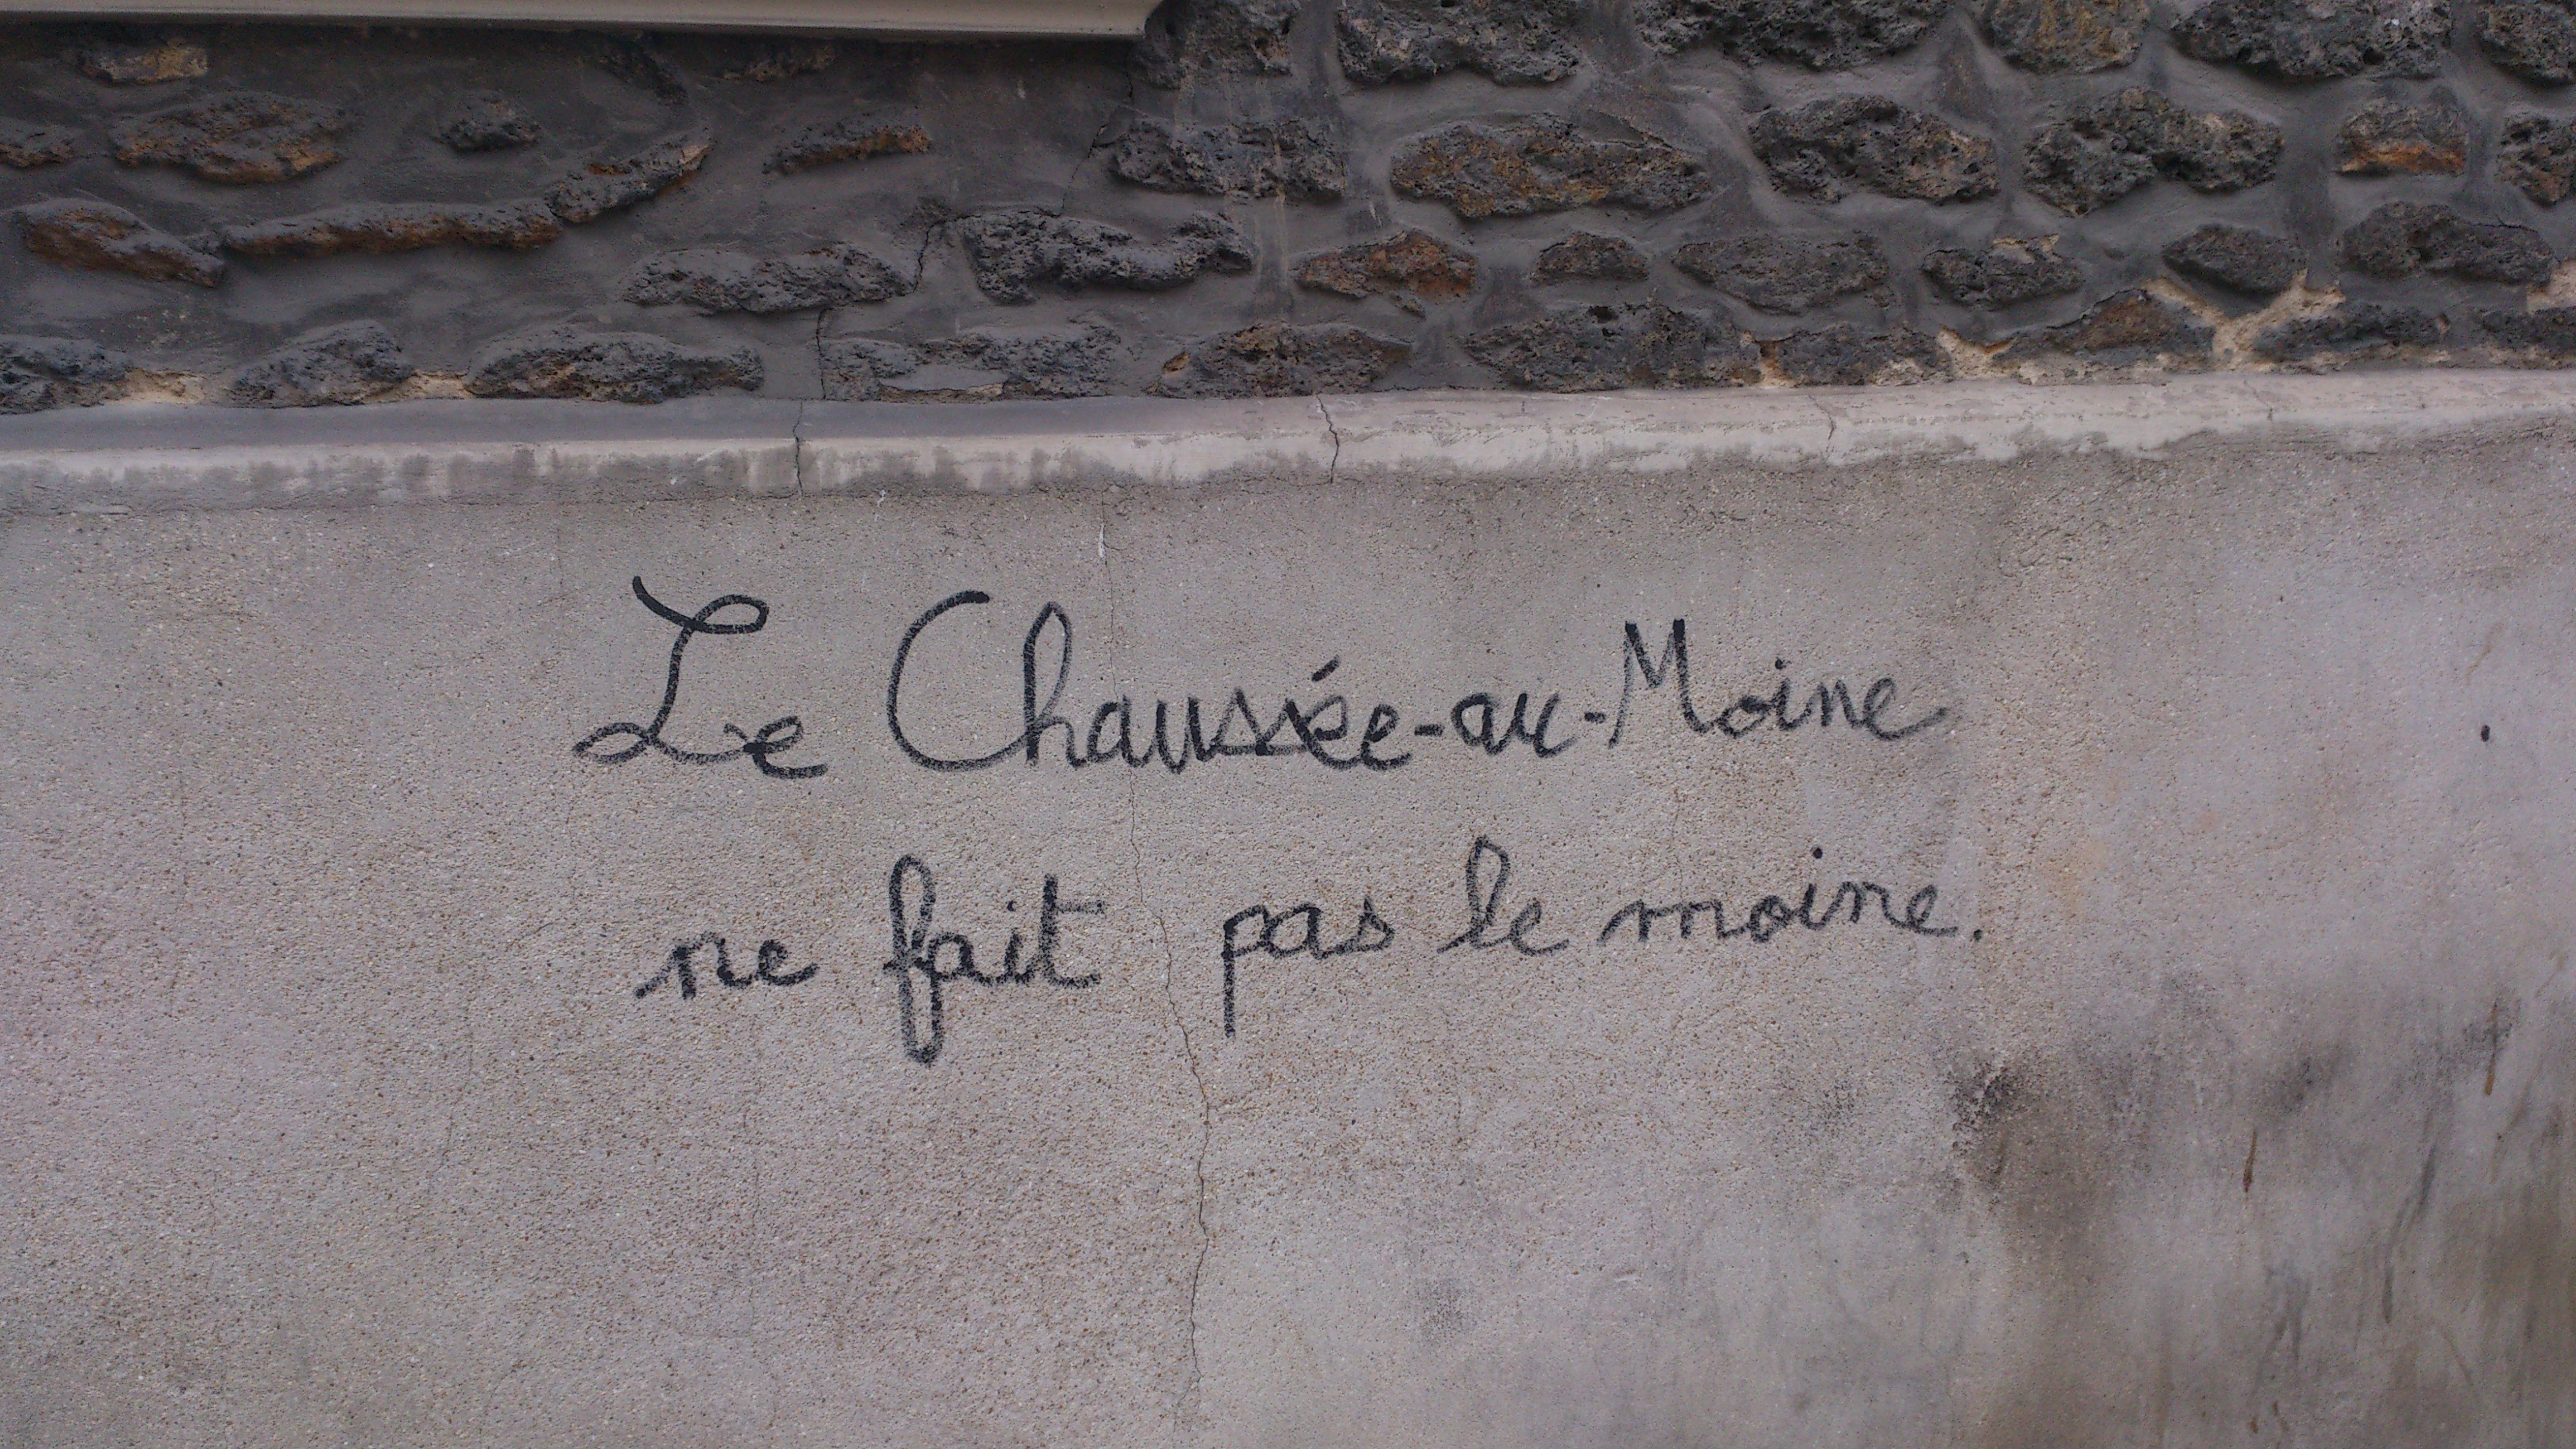 Le Chaussée-au-Moine
ne fait pas le moine.